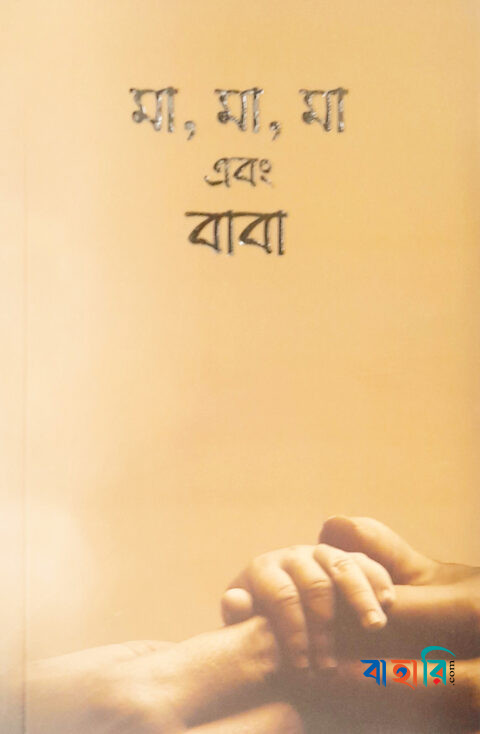 মা, মা, মা
এবং
বাবা
বাহারি.com